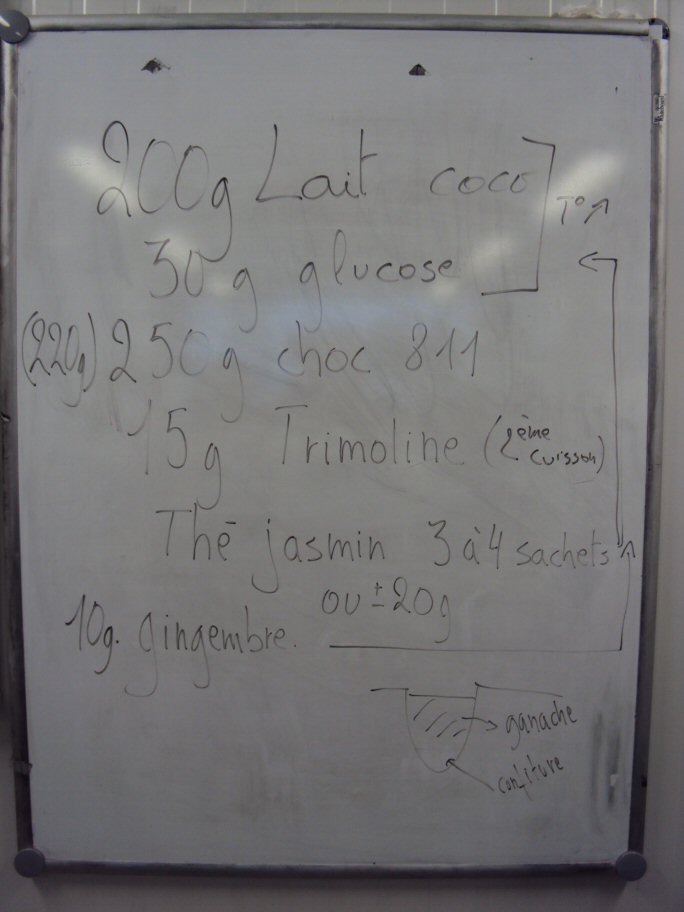 200g Lait coco
T° ↗
30g glucose
(220g) 250g choc 811
15g Trimoline (2ème cuisson)
Thé jasmin 3 à 4 sachets
ou ± 20g
10g. gingembre.
ganache
confiture